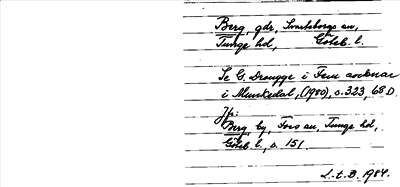 Berg, gdr, Svarteborgs sn,
Tunge hd, Göteb. l.
Se G. Drougge i Fem socknar
i Munkedal, (1980), s. 323, 68 D.
Jfr:
Berg, by, Foss sn, Tunge hd,
Göteb. l., s. 151.
L.t.B. 1984.